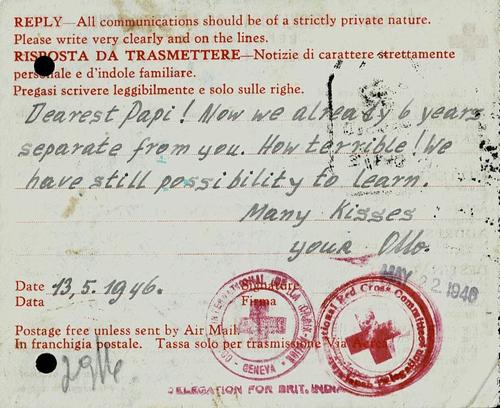 REPLY—All communications should be of a strictly private nature.
Please write very clearly and on the lines.
RISPOSTA DA TRASMETTERE—Notizie di carattere strettamente
personale e d'indole familiare.
Pregasi scrivere leggibilmente e solo sulle righe.
Dearest Papi! Now we already 6 years
separate from you. How terrible! We
have still possibility to learn.
Many Kisses
your Otto.
Date 13, 5. 1946. Signature
Data Firma
MAY 22 1946
Postage free unless sent by Air Mail.
In franchigia postale. Tassa solo per trasmissione Via Aerea.
INTERNATIONAL DE LA CROIX-ROUGE
GENEVA
International Red Cross Committee
Delegation
DELEGATION FOR BRIT. INDIA